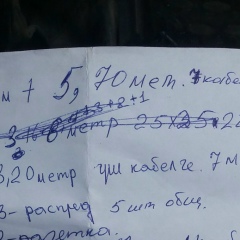 м + 5,70 мет. кабе
+3+2+1
метр 25х25х2
3,20метр үш кабелге. 7м
3- распред 5 шт общ.
розетка.